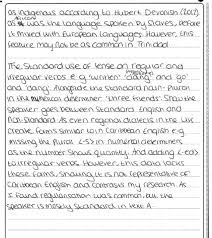 as indigenous according to Hubert Devonish (2007)
as African was the language spoken by Slaves, before
it mixed with European languages. However, this
feature may not be as common in Trinidad.
The Standard use of tense on regular and
irregular verbs e.g 'written' and 'go'
and 'doing'. Alongside the standard noun- plural
in the numerical determiner 'three friends'. Show the
speaker goes between Standard English and
non-Standard. As even regional dialects in the UK
create forms similar to in Caribbean English e.g
missing the plural <-s> in numerical determiners
as the number shows quantity. And adding <-ed>
to irregular verbs. However, this data lacks
these forms, showing it is not representative of
Caribbean English and contrasts my research. As
I found regularisation was common, but the
speaker is mostly Standard in Text A.